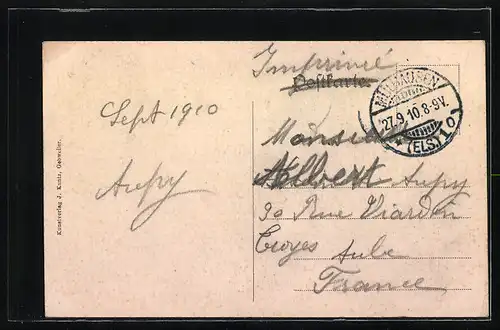 Imprimé
Postkarte
MÜLHAUSEN
27.9.10.8-9V.
* (ELS.) 1 o
Sept 1910
Aupy
Monsieur
Albert Aupy
30 Rue Viardin
Troyes Aube
France
Kunstverlag J. Kuntz, Gebweiler.